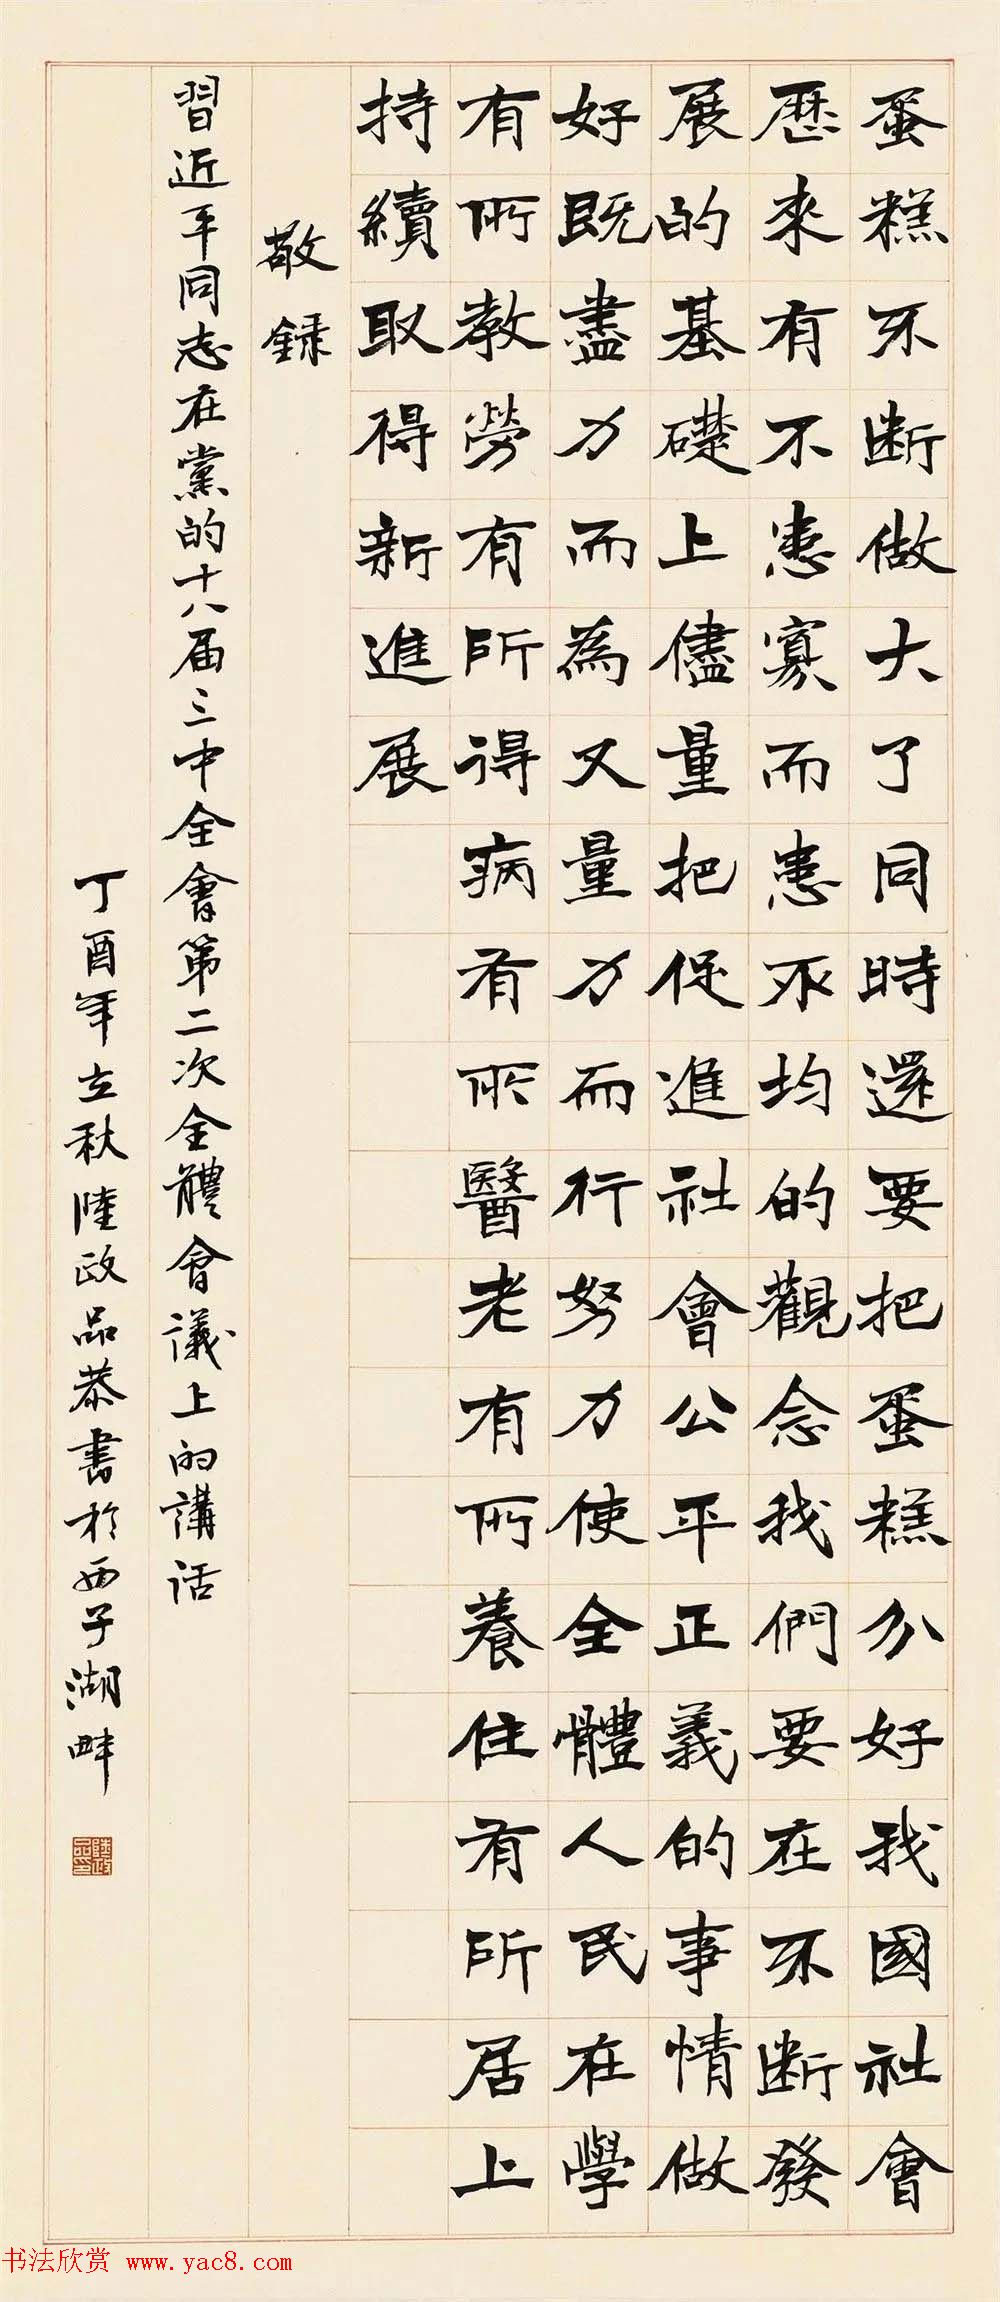 蛋糕不断做大了同時還要把蛋糕分好我國社會
歷來有不患寡而患不均的觀念我們要在不断發
展的基礎上儘量把促進社會公平正義的事情做
好既盡力而為又量力而行努力使全體人民在學
有所教勞有所得病有所醫老有所養住有所居上
持續取得新進展
敬録
習近平同志在黨的十八届三中全會第二次全體會議上的講話
丁酉年立秋陸政品恭書於西子湖畔
陸政品印
书法欣赏 www.yac8.com